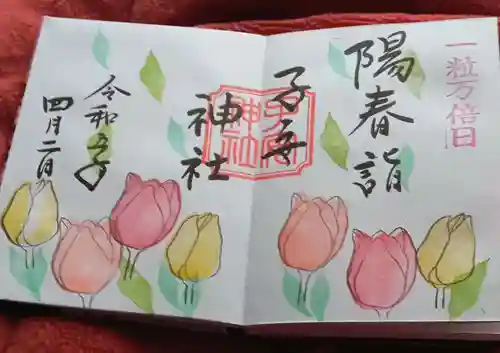 一粒万倍日
陽春詣
子安
神社
子安神社
令和五年
四月二日